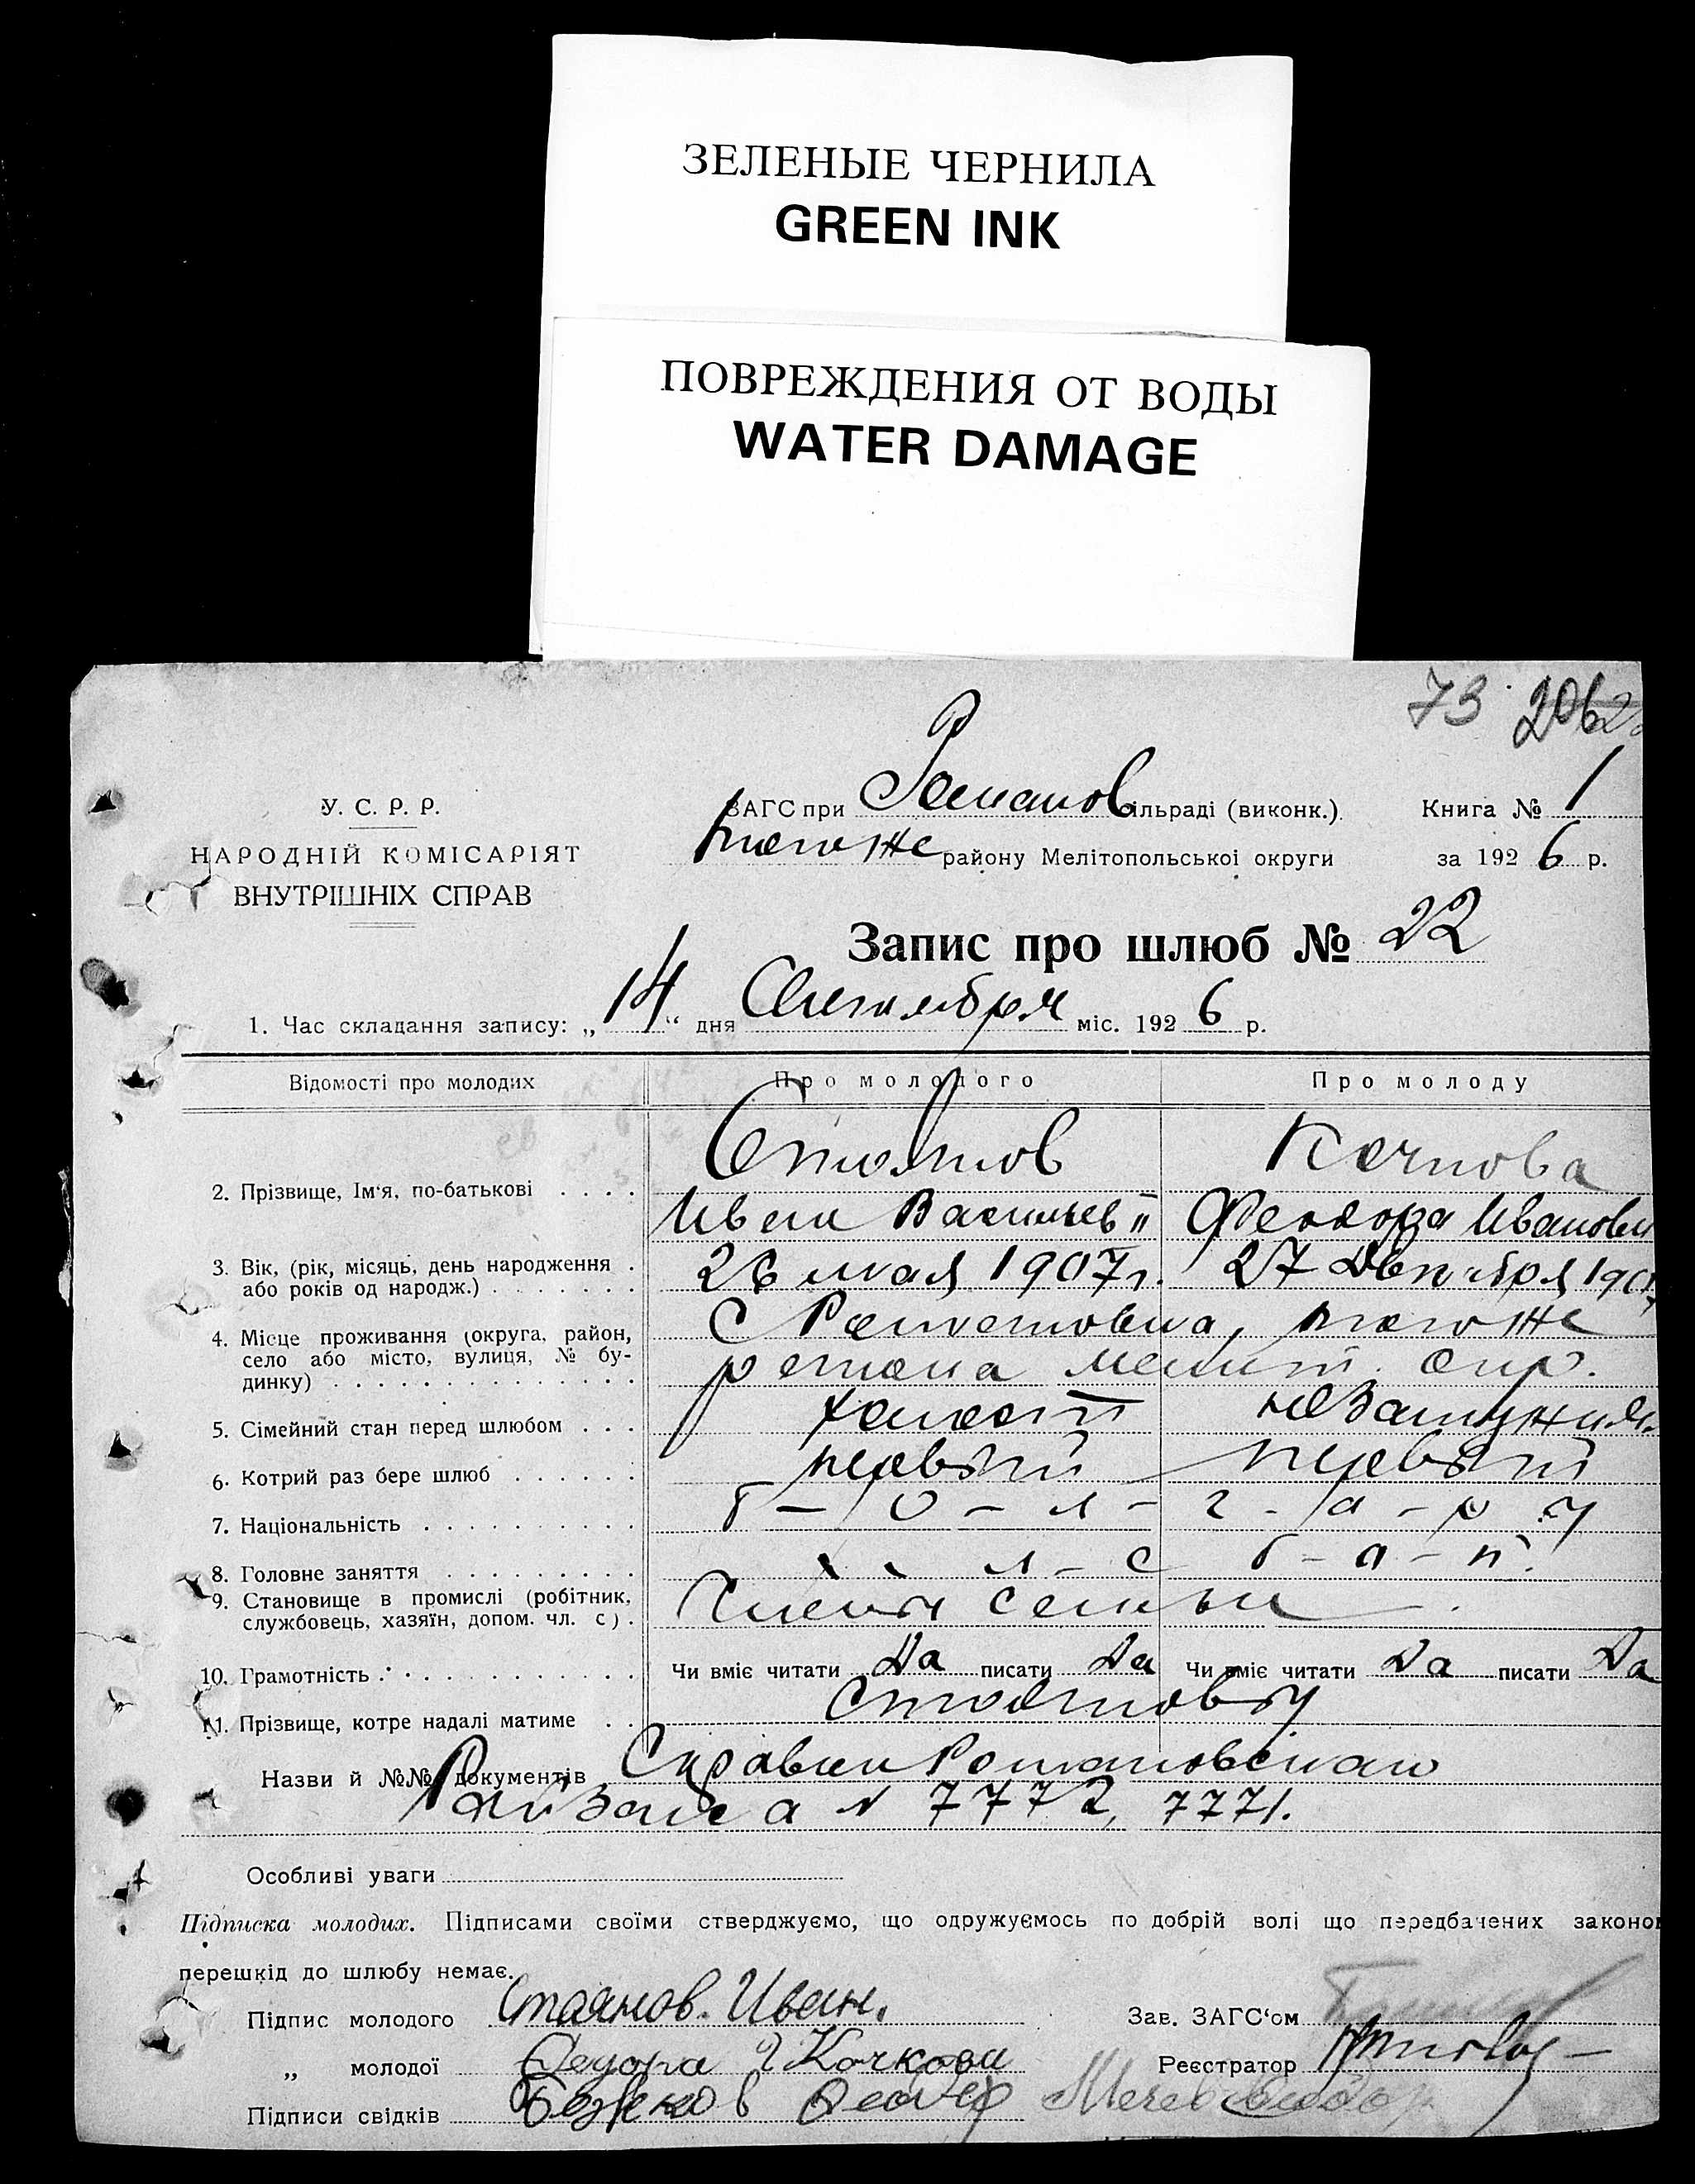 ЗЕЛЕНЫЕ ЧЕРНИЛА
GREEN INK
ПОВРЕЖДЕНИЯ ОТ ВОДЫ
WATER DAMAGE
73
У. С. Р. Р.
НАРОДНІЙ КОМІСАРІЯТ
ВНУТРІШНІХ СПРАВ
ЗАГС при Романов сільраді (виконк.). Книга № 1
того же району Мелітопольської округи за 1926 р.
Запис про шлюб № 22
1. Час складання запису: „14“ дня Октября міс. 1926 р.
Відомості про молодих Про молодого Про молоду
2. Прізвище, Ім‘я, по-батькові . . . . Стоянов Кочкова
Иван Васильев Феодора Иванов
3. Вік, (рік, місяць, день народження . або років од народж.) . . . . . . . 26 мая 1907 г. 27 190
4. Місце проживання (округа, район, село або місто, вулиця, № будинку) . . . . . . . . . . . . . . С Романовка, того же
района Мелит. окр.
5. Сімейний стан перед шлюбом . . . холост незамужняя
6. Котрий раз бере шлюб . . . . . . первый первый
7. Національність . . . . . . . . . . б - о - л - г - а - р ы
8. Головне заняття . . . . . . . . . х л - с б - а - п.
9. Становище в промислі (робітник, службовець, хазяїн, допом. чл. с.) . Члены семьи
10. Грамотність . . . . . . . . . . . . Чи вміє читати Да писати Да Чи вміє читати Да писати Да
11. Прізвище, котре надалі матиме . . Стояновы
Назви й №№ документів Справки Романовскаго
Райзагса № 7772, 7771.
Особливі уваги
Підписка молодих. Підписами своїми стверджуємо, що одружуємось по добрій волі що передбачених законо
перешкід до шлюбу немає.
Підпис молодого Стоянов. Иван. Зав. ЗАГС‘ом
„ молодої Федора И Кочкова Реєстратор
Підписи свідків